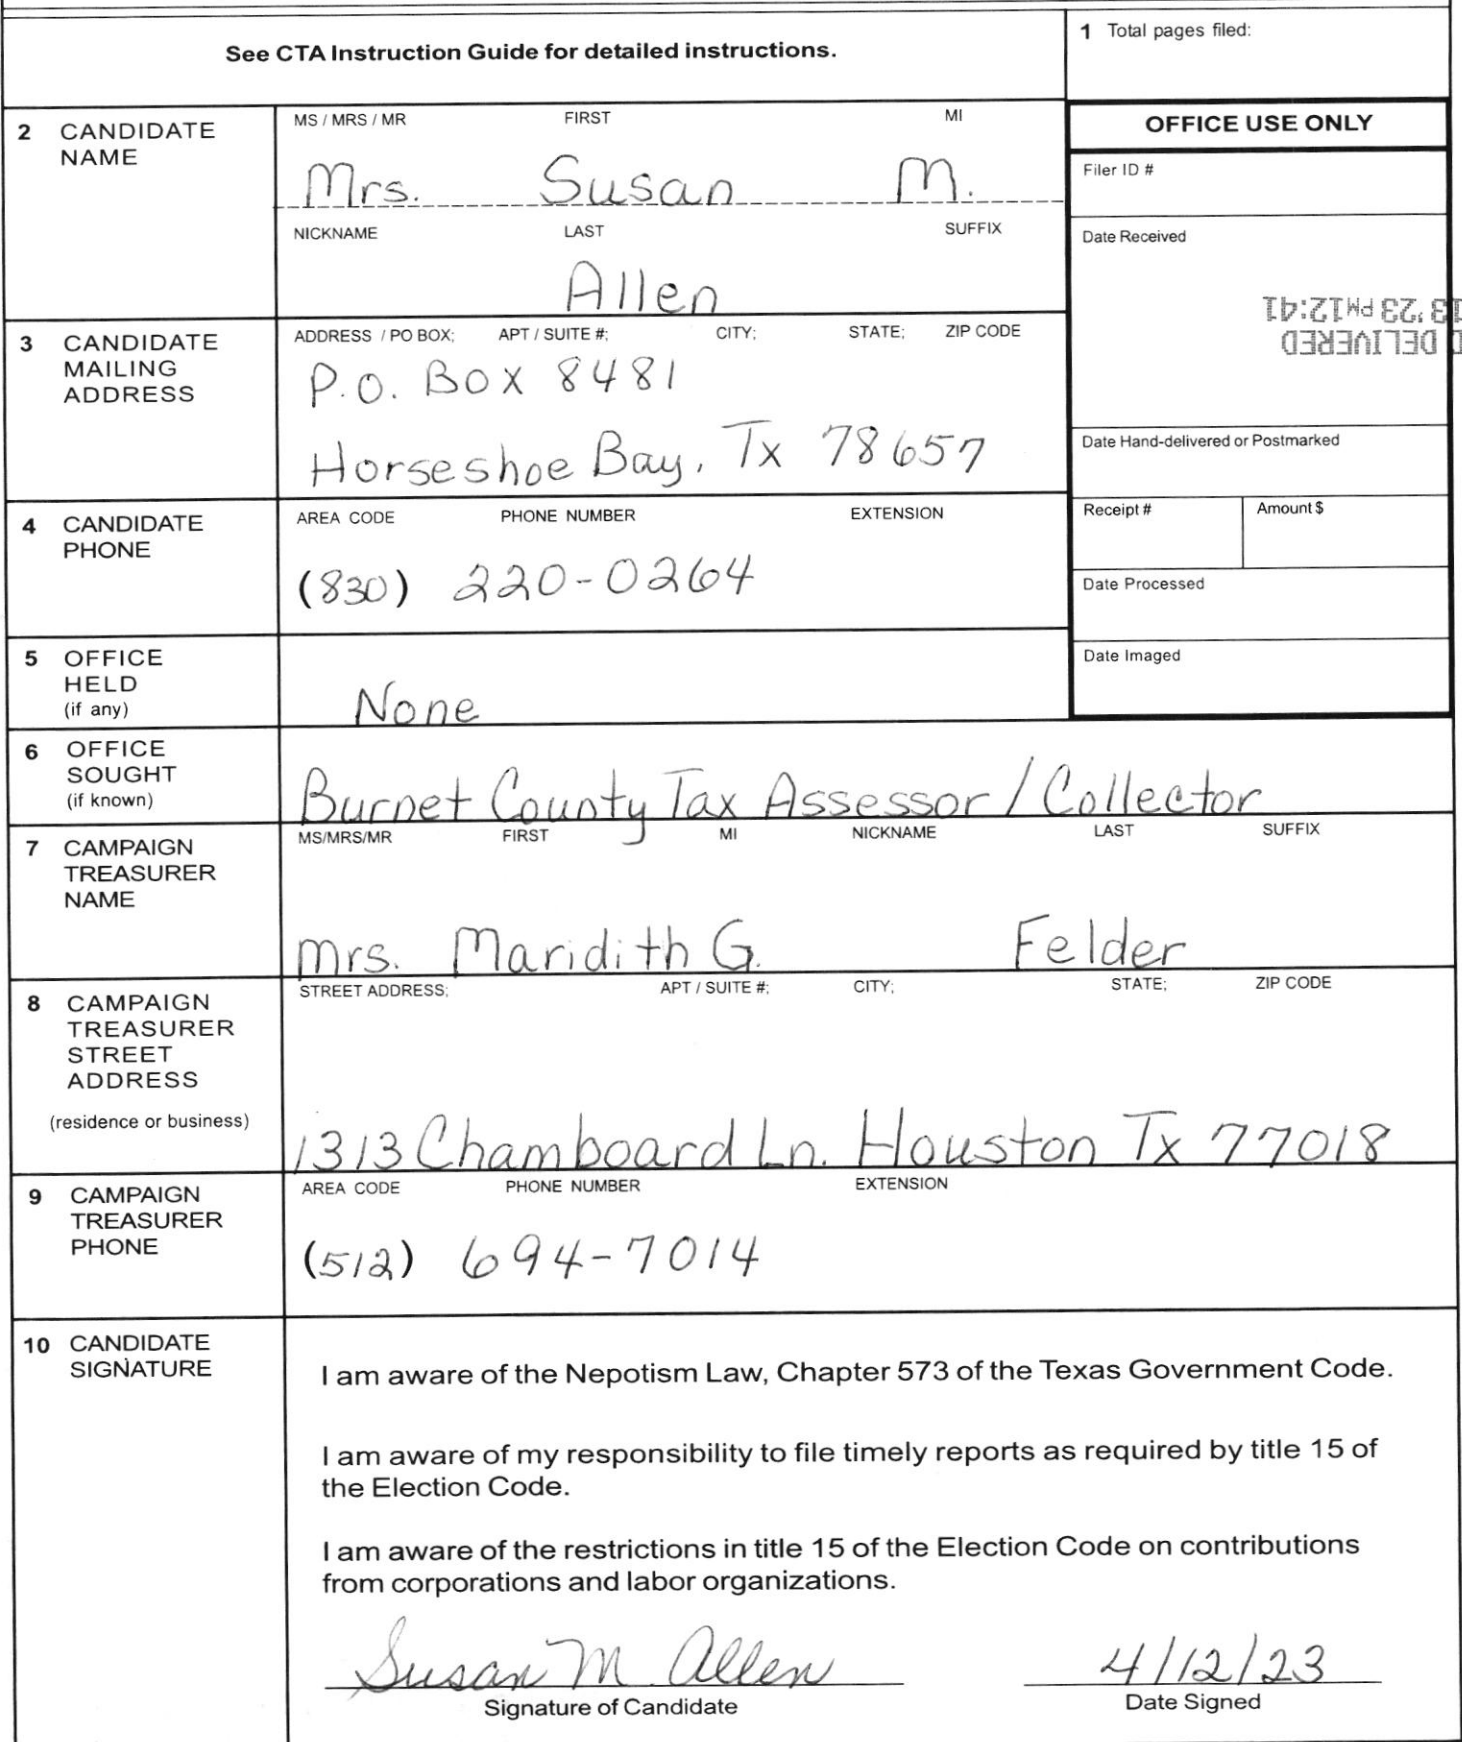 See CTA Instruction Guide for detailed instructions.
1 Total pages filed:
2 CANDIDATE NAME
MS / MRS / MR FIRST MI
Mrs. Susan M.
NICKNAME LAST SUFFIX
Allen
OFFICE USE ONLY
Filer ID #
Date Received
13 '23 PM12:41
DELIVERED
Date Hand-delivered or Postmarked
Receipt # Amount $
Date Processed
Date Imaged
3 CANDIDATE MAILING ADDRESS
ADDRESS / PO BOX; APT / SUITE #; CITY; STATE; ZIP CODE
P.O. Box 8481
Horseshoe Bay, Tx 78657
4 CANDIDATE PHONE
AREA CODE PHONE NUMBER EXTENSION
(830) 220-0264
5 OFFICE HELD (if any)
None
6 OFFICE SOUGHT (if known)
Burnet County Tax Assessor / Collector
7 CAMPAIGN TREASURER NAME
MS/MRS/MR FIRST MI NICKNAME LAST SUFFIX
Mrs. Maridith G. Felder
8 CAMPAIGN TREASURER STREET ADDRESS
(residence or business)
STREET ADDRESS; APT / SUITE #; CITY; STATE; ZIP CODE
1313 Chamboard Ln. Houston Tx 77018
9 CAMPAIGN TREASURER PHONE
AREA CODE PHONE NUMBER EXTENSION
(512) 694-7014
10 CANDIDATE SIGNATURE
I am aware of the Nepotism Law, Chapter 573 of the Texas Government Code.
I am aware of my responsibility to file timely reports as required by title 15 of
the Election Code.
I am aware of the restrictions in title 15 of the Election Code on contributions
from corporations and labor organizations.
Susan M Allen 4/12/23
Signature of Candidate Date Signed